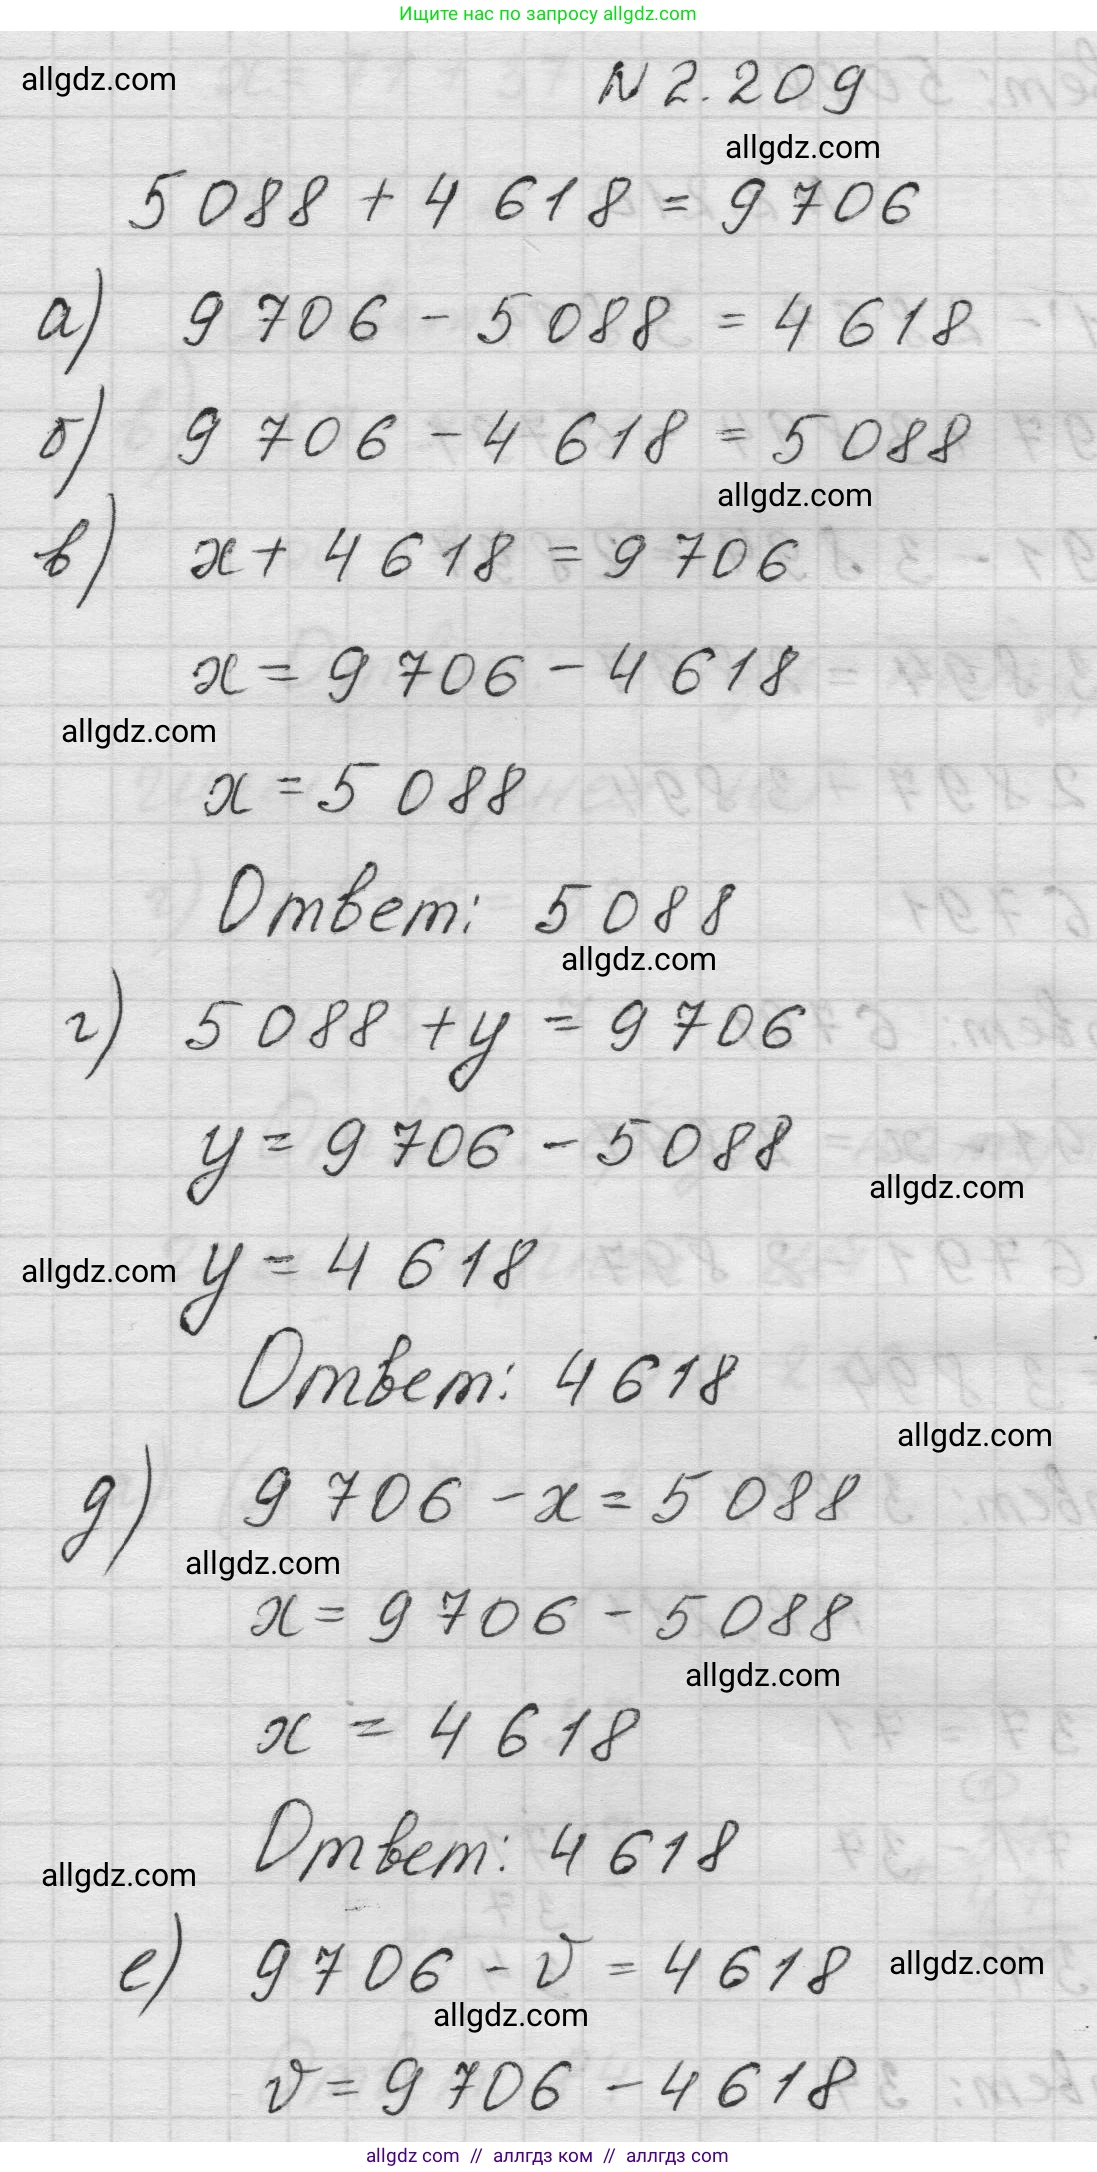 Ищите нас по запросу allgdz.com
allgdz.com
N 2.209
allgdz.com
5088 + 4618 = 9706
а) 9706 - 5088 = 4618
б) 9706 - 4618 = 5088
allgdz.com
в) x + 4618 = 9706
x = 9706 - 4618
allgdz.com
x = 5088
Ответ: 5088
allgdz.com
г) 5088 + y = 9706
y = 9706 - 5088
allgdz.com
allgdz.com
y = 4618
Ответ: 4618
allgdz.com
д) 9706 - x = 5088
allgdz.com
x = 9706 - 5088
allgdz.com
x = 4618
Ответ: 4618
allgdz.com
е) 9706 - v = 4618
allgdz.com
allgdz.com
v = 9706 - 4618
allgdz.com // аллгдз ком // аллгдз.com